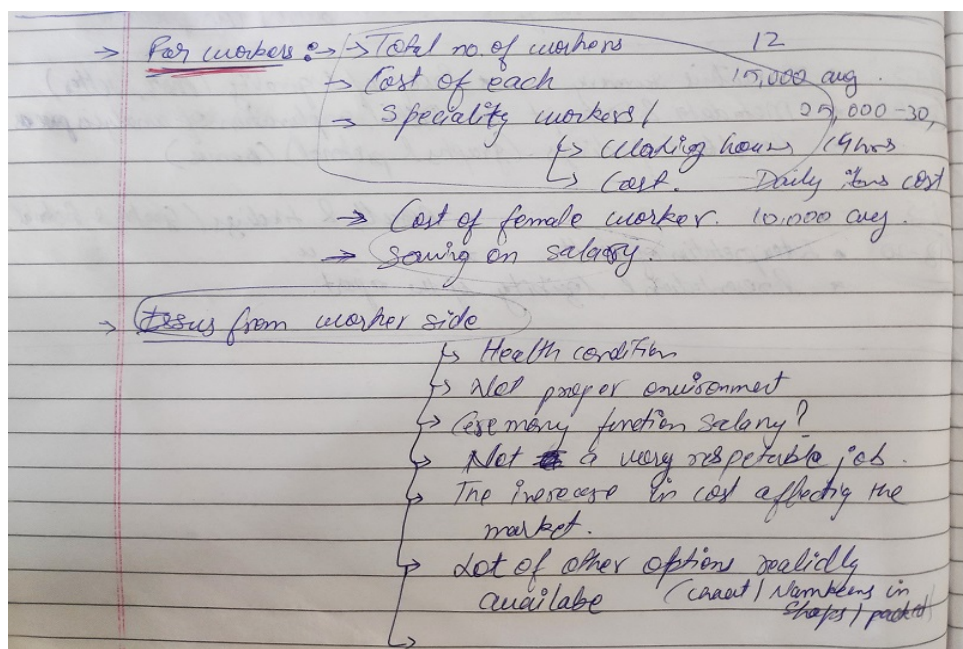 → For workers :→ → Total no. of workers 12
→ Cost of each 15,000 avg.
→ Speciality workers / 25,000-30,
↳ Working hours 14hrs
↳ Cost. Daily cost
→ Cost of female worker. 10,000 avg.
→ Saving on salary.
→ Issus from worker side
↳ Health condition
↳ Not proper environment
↳ Ceremony function salary?
↳ Not a very respetable job.
↳ The increase in cost affectig the
market.
↳ Lot of other options realidly
availabe (chaat / Namkeens in
Shops / packet)